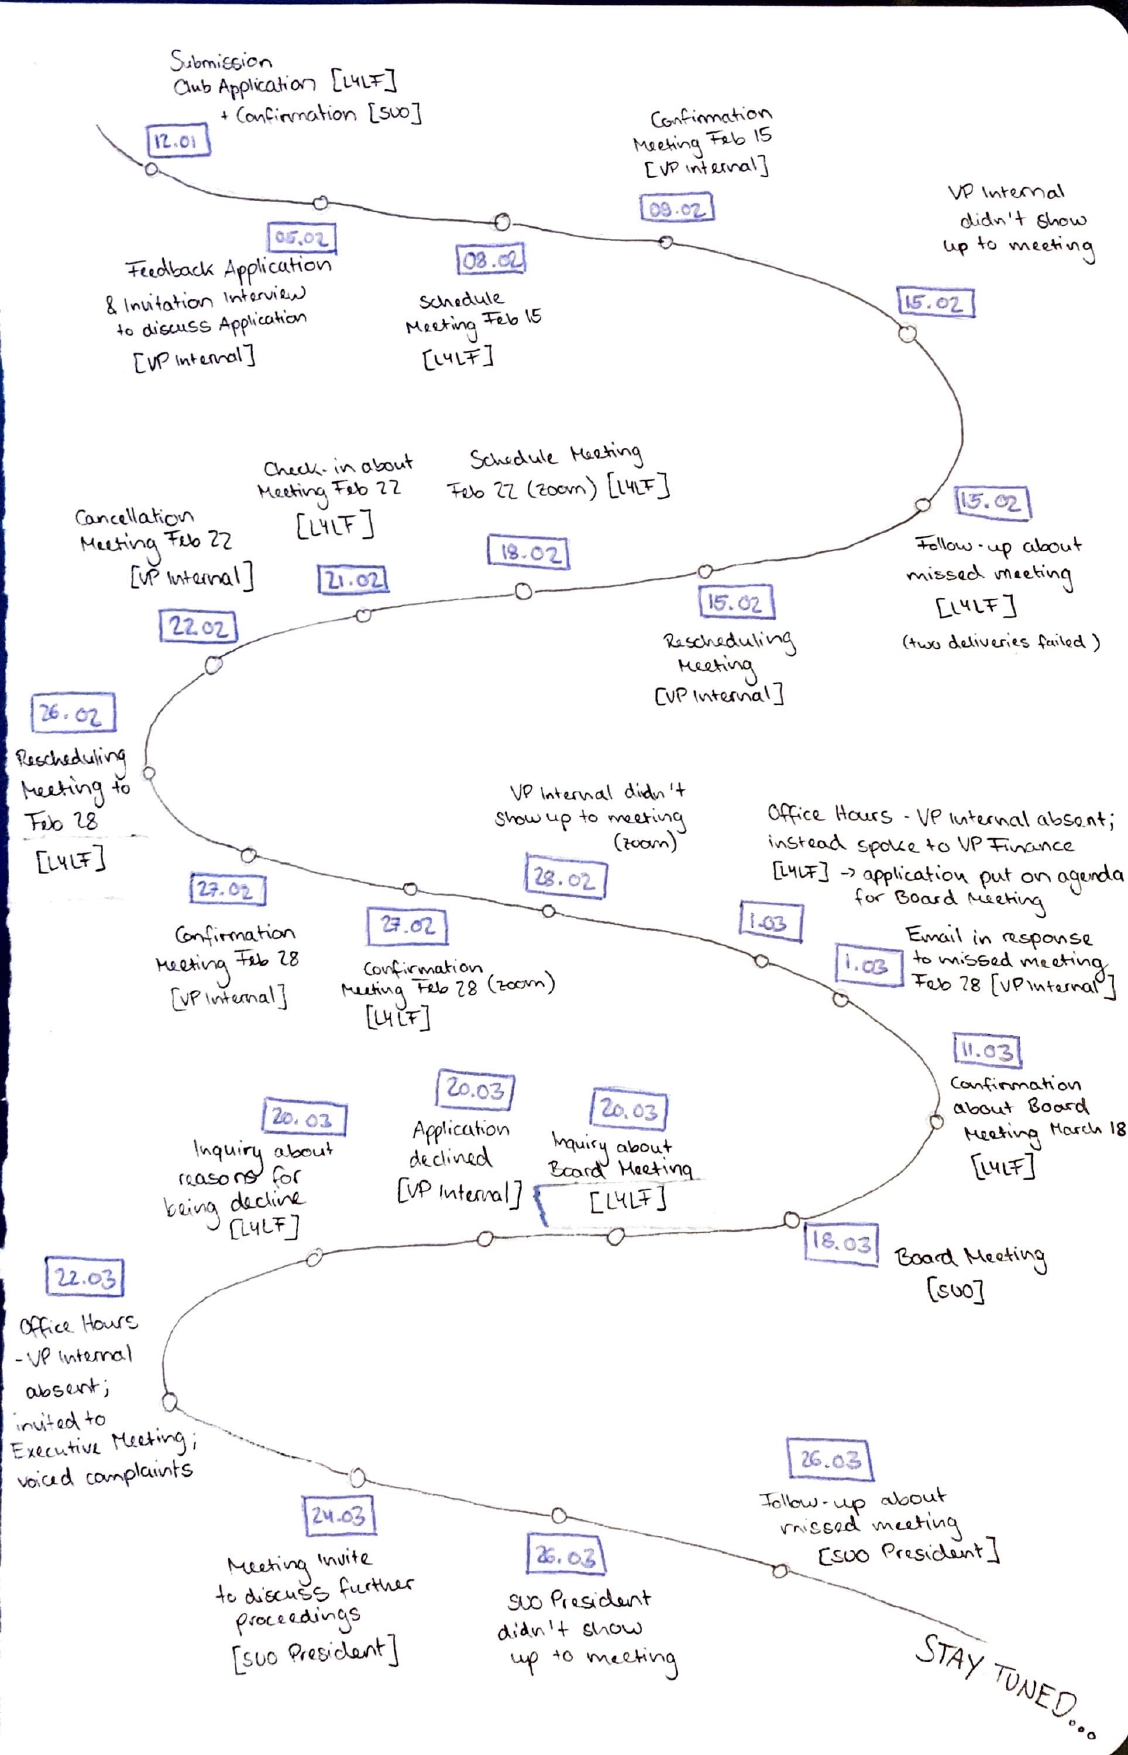 Submission
Club Application [L4LF]
+ Confirmation [SUO]
12.01
05.02
Feedback Application
& Invitation Interview
to discuss Application
[VP Internal]
08.02
Schedule
Meeting Feb 15
[L4LF]
Confirmation
Meeting Feb 15
[VP Internal]
09.02
VP Internal
didn't show
up to meeting
15.02
15.02
Follow-up about
missed meeting
[L4LF]
(two deliveries failed)
15.02
Rescheduling
Meeting
[VP Internal]
Schedule Meeting
Feb 22 (zoom) [L4LF]
18.02
Check-in about
Meeting Feb 22
[L4LF]
21.02
Cancellation
Meeting Feb 22
[VP Internal]
22.02
26.02
Rescheduling
Meeting to
Feb 28
[L4LF]
27.02
Confirmation
Meeting Feb 28
[VP Internal]
27.02
Confirmation
Meeting Feb 28 (zoom)
[L4LF]
VP Internal didn't
show up to meeting
(zoom)
28.02
Office Hours - VP Internal absent;
instead spoke to VP Finance
[L4LF] -> application put on agenda
for Board Meeting
1.03
1.03
Email in response
to missed meeting
Feb 28 [VP Internal]
11.03
Confirmation
about Board
Meeting March 18
[L4LF]
18.03
Board Meeting
[SUO]
20.03
Inquiry about
Board Meeting
[L4LF]
20.03
Application
declined
[VP Internal]
20.03
Inquiry about
reasons for
being decline
[L4LF]
22.03
Office Hours
- VP Internal
absent;
invited to
Executive Meeting;
voiced complaints
24.03
Meeting Invite
to discuss further
proceedings
[SUO President]
26.03
SUO President
didn't show
up to meeting
26.03
Follow-up about
missed meeting
[SUO President]
STAY TUNED...